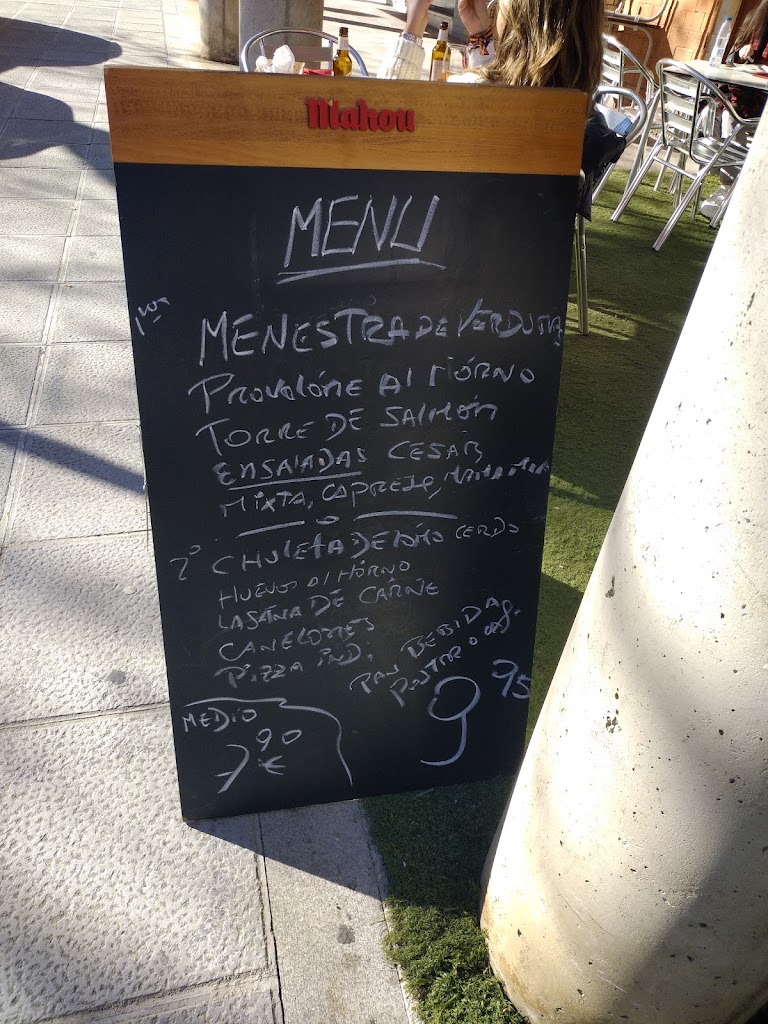 Mahou
MENU
1ros
MENESTRA DE VERDURAS
PROVOLONE AL HORNO
TORRE DE SALMÓN
ENSALADAS CESAR,
MIXTA, CAPRESE,
2º CHULETA DE LOMO CERDO
HUEVOS AL HORNO
LASAÑA DE CARNE
CANELONES
PIZZA IND.
PAN BEBIDA
POSTRE O
9,95
MEDIO
7,90
€